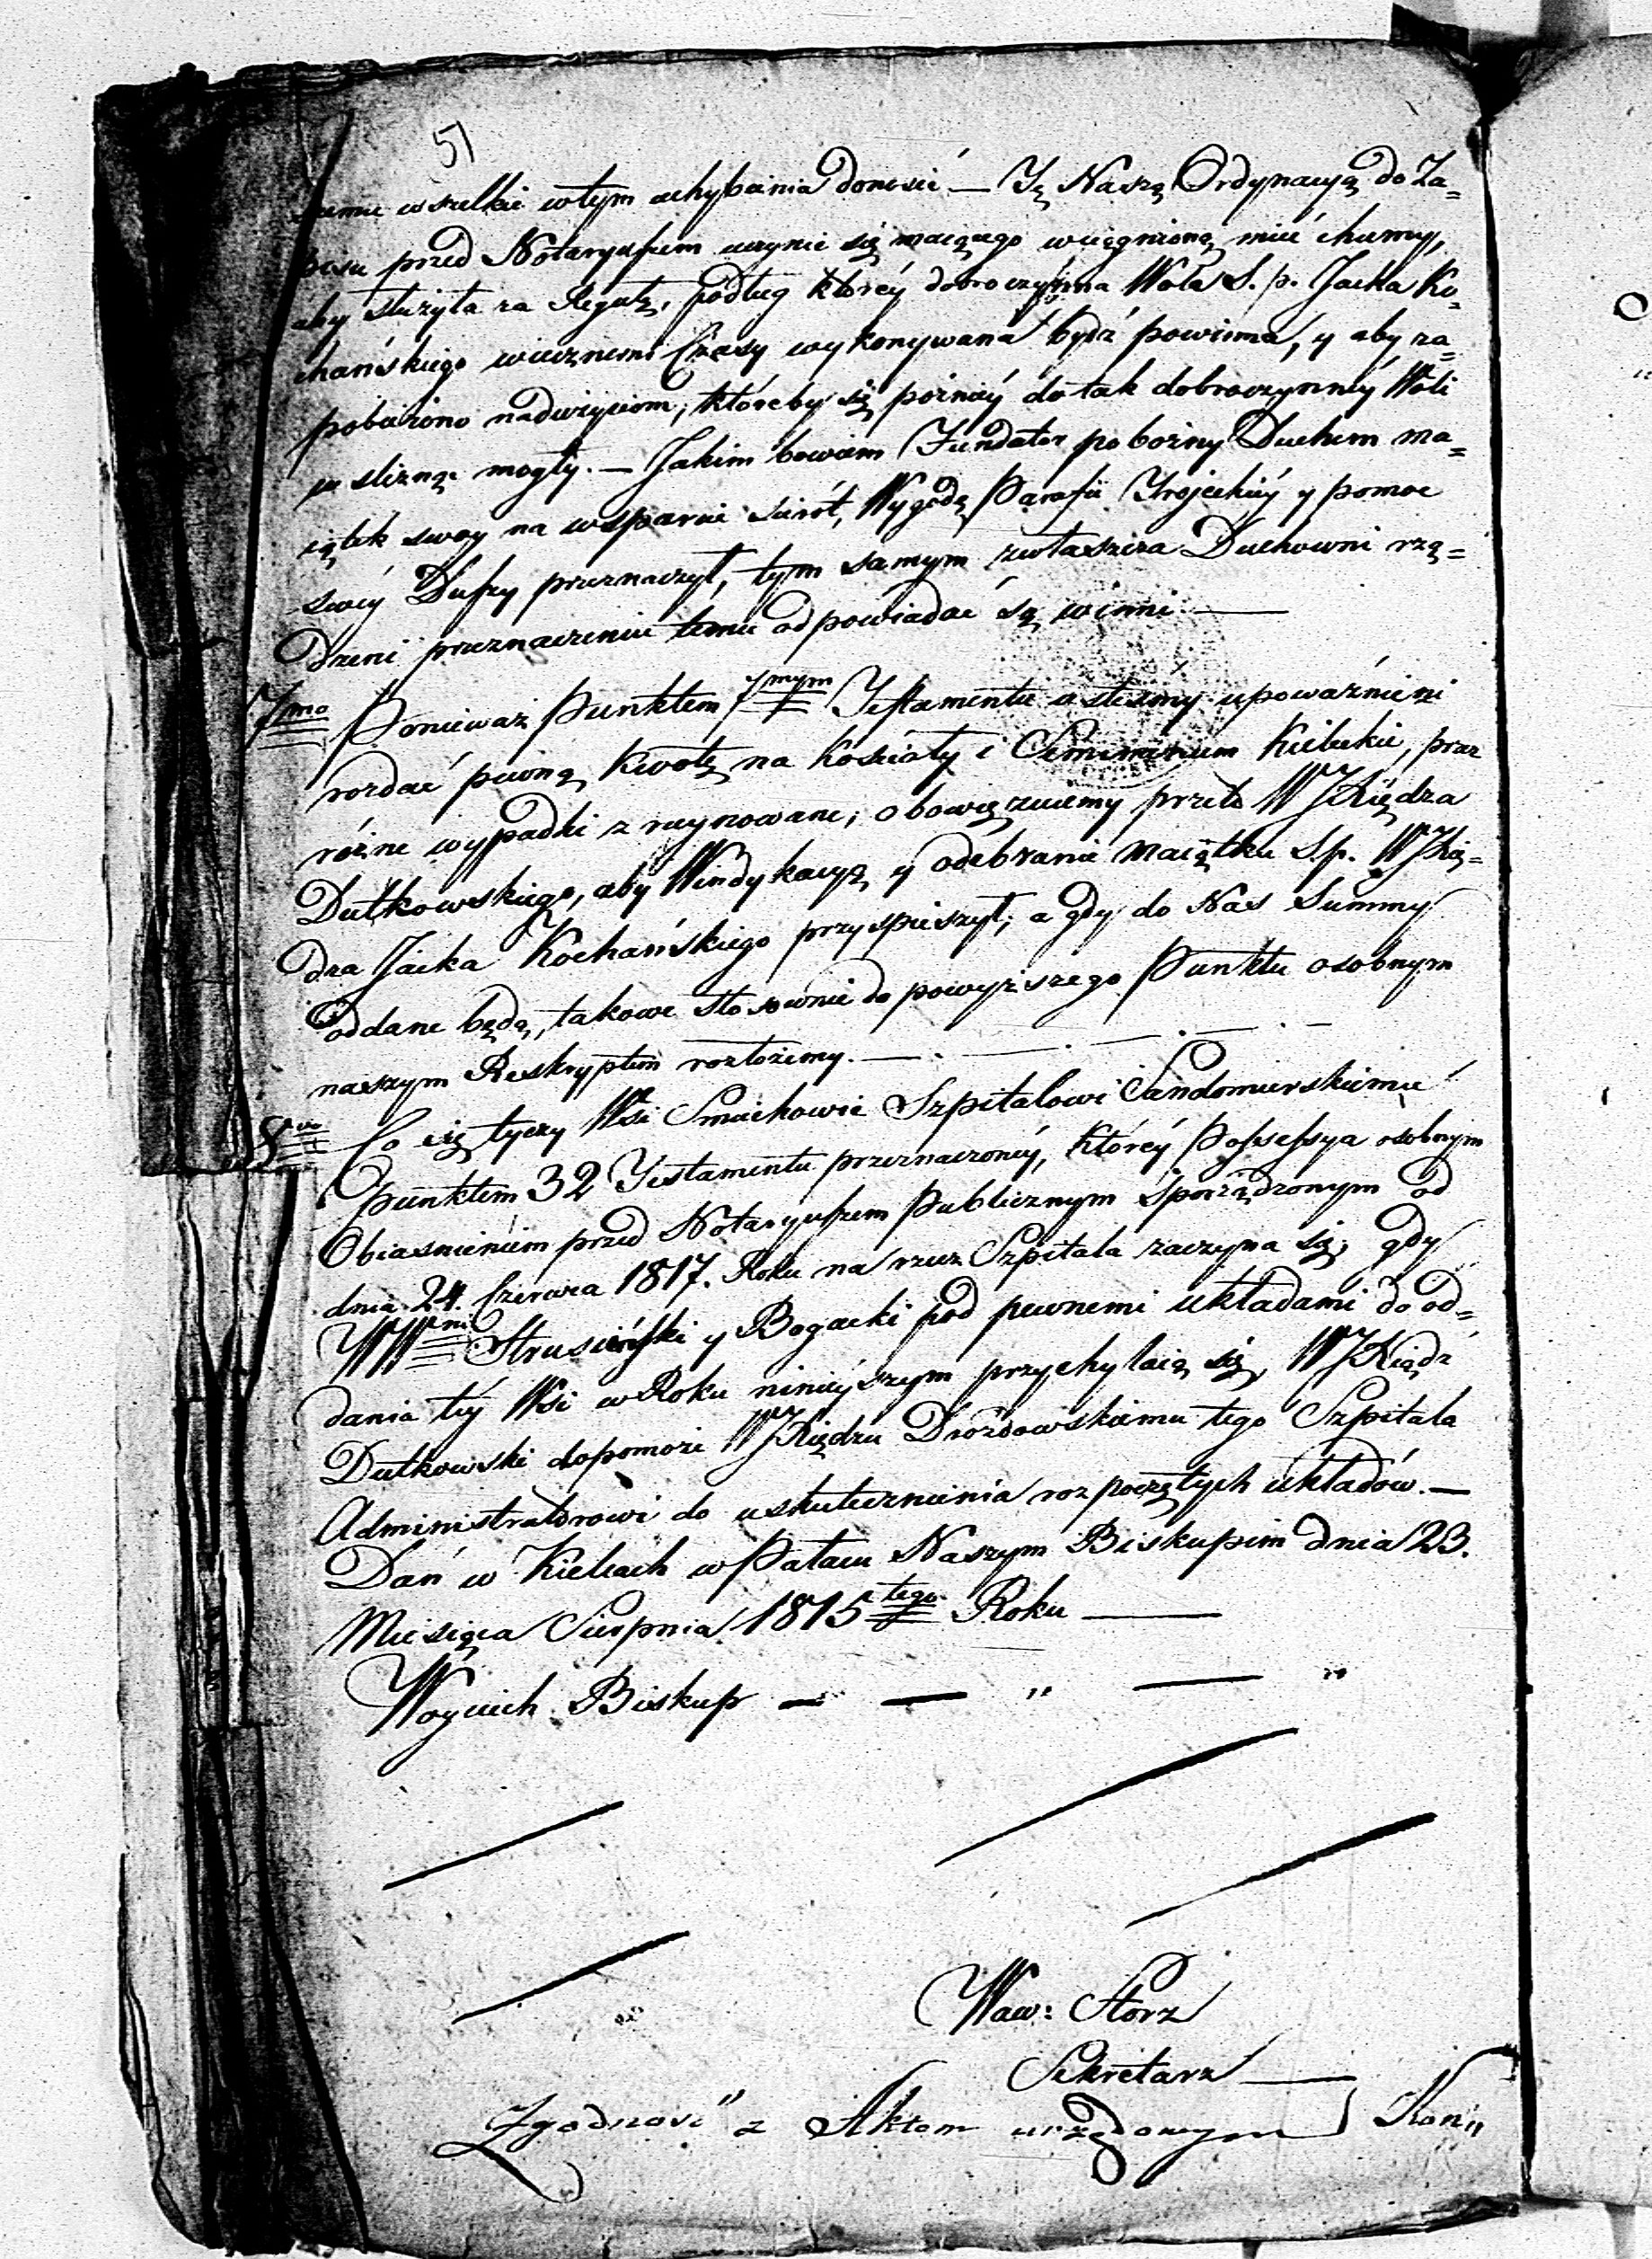 51
wszelkie w tym uchybienia donosić — Tę Naszą Ordynacyą do Za=
pisu przed Notaryuszem uczynić się maiącego wciągnioną mieć chcemy,
aby służyła za Regułę, podług którey dobroczynna Wola S. p. Jacka Ko=
chańskiego wiecznemi Czasy wykonywana bydź powinna, y aby za=
pobieżono nadużyciom, któreby się pożniey do tak dobroczynney Woli
wsliznąć mogły. — Jakim bowiem Fundator pobożny Duchem ma=
iątek swoy na wsparcie sierót, Wygodę Parafii Trojeckiéy y pomoc
swéy Duszy przeznaczył, tym samym zwłaszcza Duchowni rzą=
dzeni przeznaczeniu temu odpowiadać są winni —
7mo Ponieważ Punktem 7mym Testamentu iestesmy upoważnieni
rozdać pewną kwotę na kościoły i Seminarium Kieleckie, przez
różne wypadki zruynowane, obowięzuiemy przeto WJXiędza
Dutkowskiego, aby Windykacyą y odebranie maiątku S.p. WJXię=
dza Jacka Kochańskiego przyspieszył, a gdy do Nas Summy
oddane będą, takowe stosownie do powyższego Punktu osobnym
naszym Reskryptem rozłożemy. —
8vo Co się tyczy Wsi Smiechowic Szpitalowi Sandomierskiemu
punktem 32 Testamentu przeznaczonéy, któréy Possessya osobnym
Obiasnieniem przed Notaryuszem Publicznym sporządzonym od
dnia 24. Czerwca 1817. Roku na rzecz Szpitala zaczyna się, gdy
WWni Strusieński y Bogacki pod pewnemi układami do od=
dania téy Wsi w Roku ninieyszym przychylaią się, WJXiądz
Dutkowski dopomoże WJXiędzu Drozdowskiemu tego Szpitala
Administratorowi do uskutecznienia rozpoczętych układów. —
Dań w Kielcach w Pałacu Naszym Biskupim dnia 23.
Miesiąca Sierpnia 1815tego Roku —
Woyciech Biskup — — " — "
Waw: Storz
Sekretarz —
Zgodność z Aktem urzędowym Kon"